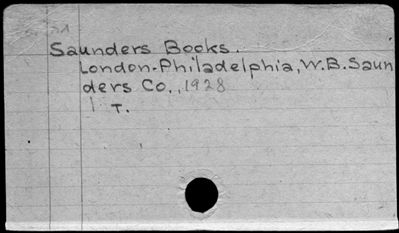 Saunders Books.
London-Philadelphia, W.B. Saun
ders Co., 1928
1 T.